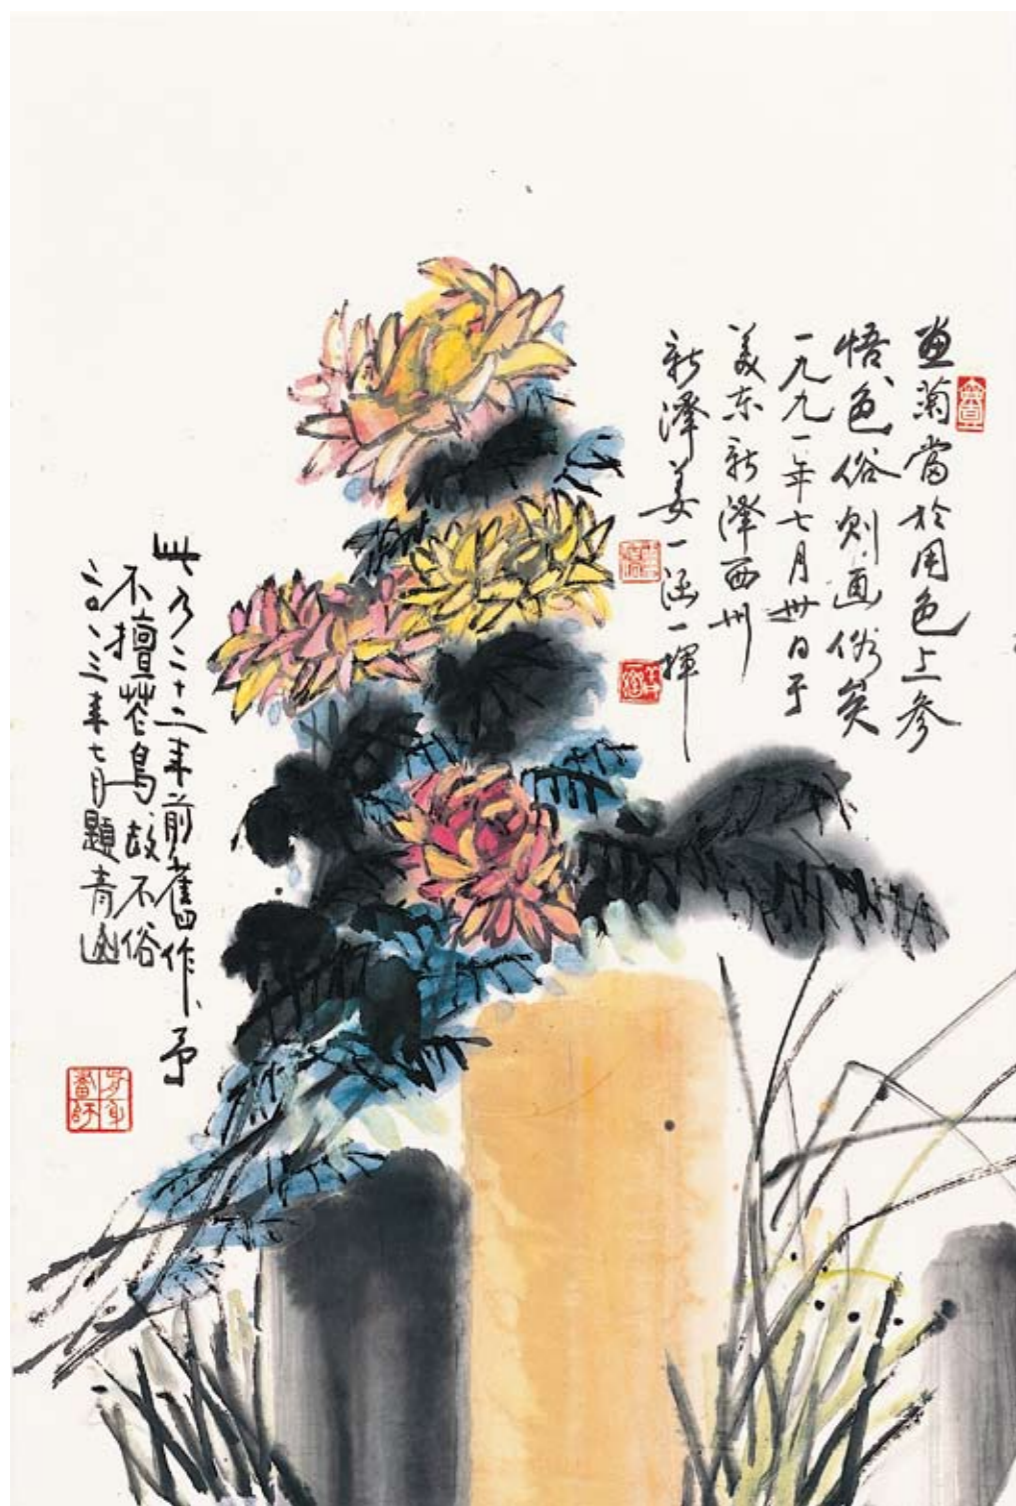 畫菊當於用色上參
悟色俗則画俗矣
一九九一年七月卅日于
美东新澤西州
新澤姜一涵一揮
此乃二十二年前舊作予
不擅花鳥故不俗
二〇一三年七月題青